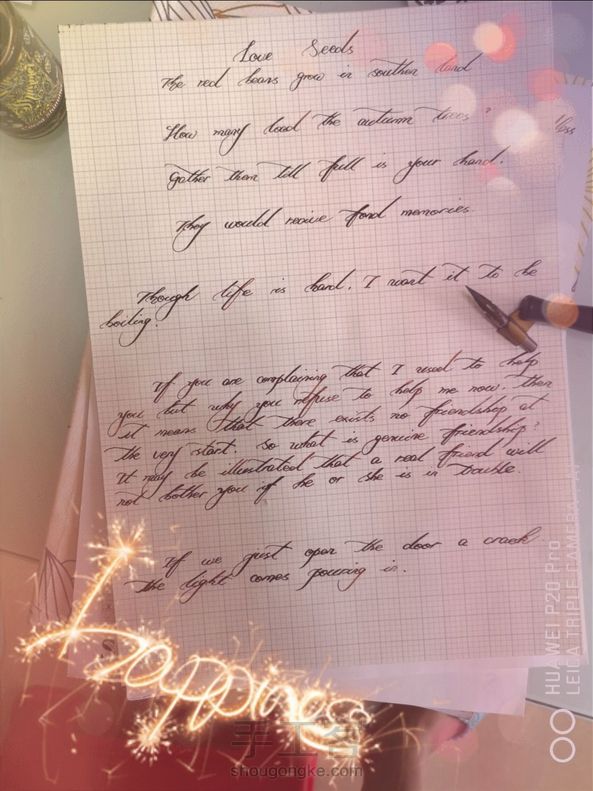 Love Seeds
The red beans grow in southern land
How many load the autumn trees?
Gather them till full is your hand.
They would revive fond memories.
Though life is hard, I want it to be
boiling.
If you are complaining that I used to help
you but why you refuse to help me now. then
it means that there exists no friendship at
the very start. So what is genuine friendship?
It may be illustrated that a real friend will
not bother you if he or she is in trouble.
If we just open the door a crack
the light comes pouring in.
happiness
手工客
shougongke.com
HUAWEI P20 Pro
LEICA TRIPLE CAMERA | AI